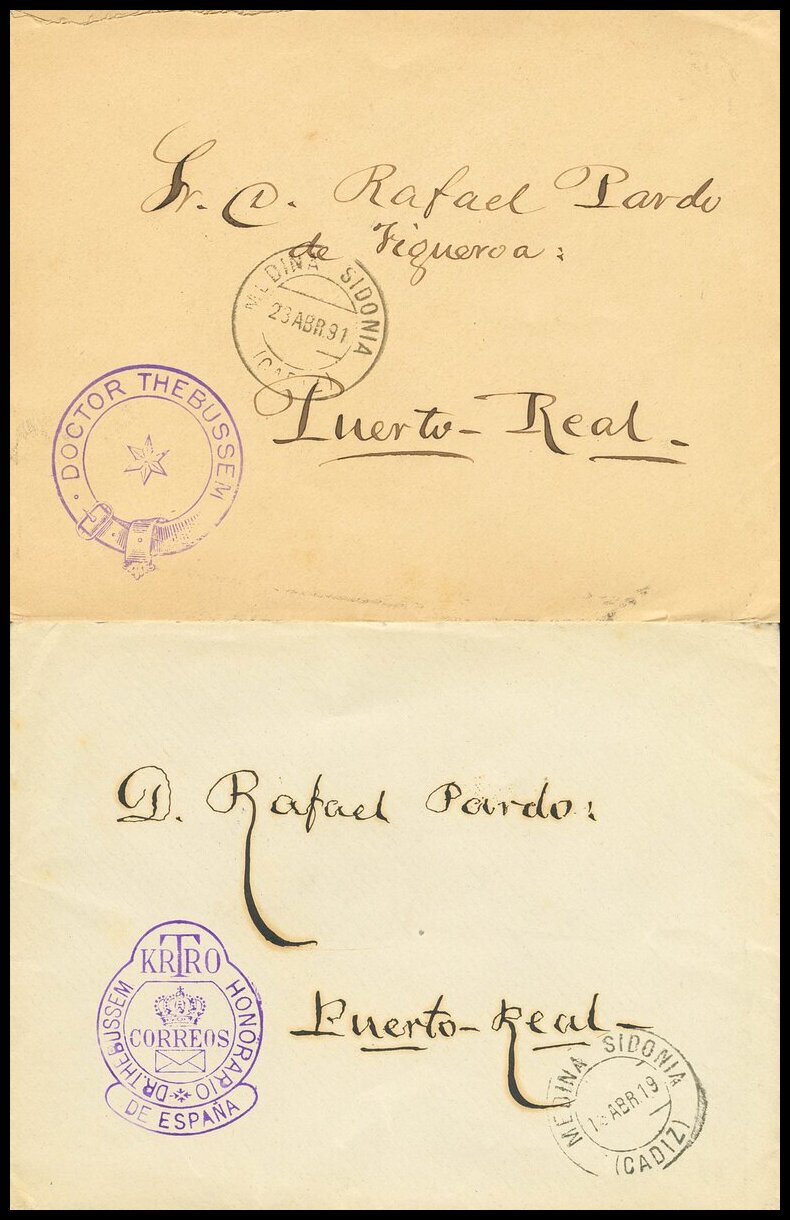 Sr. D. Rafael Pardo
de Figueroa:
MEDINA SIDONIA
23 ABR. 91
(CADIZ)
DOCTOR THEBUSSEM
Puerto-Real.
D. Rafael Pardo:
KRTRO
HONORARIO
CORREOS
DR. THEBUSSEM
DE ESPAÑA
Puerto-Real-
MEDINA SIDONIA
ABR. 19
(CADIZ)